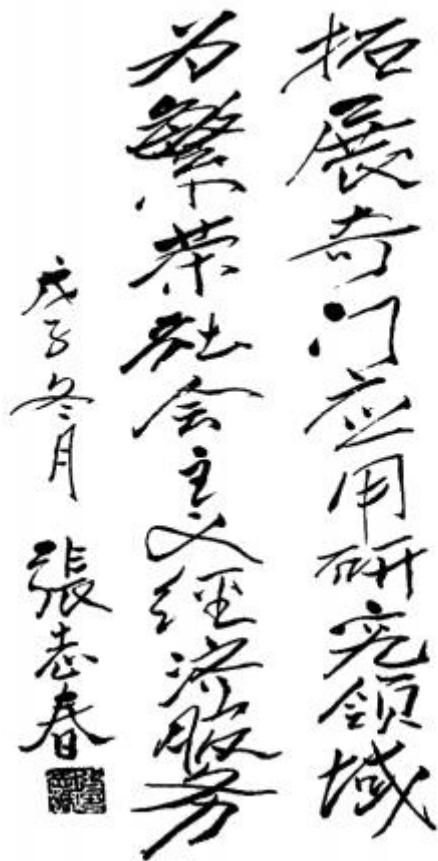 拓展奇门应用研究领域
为繁荣社会主义经济服务
戊子冬月 張志春